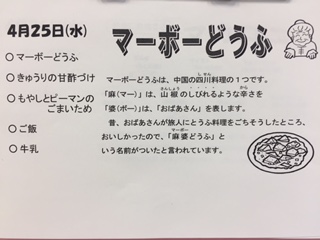 4月25日(水)
マーボーどうふ
○マーボーどうふ
○きゅうりの甘酢づけ
○もやしとピーマンの
ごまいため
○ご飯
○牛乳
マーボーどうふは、中国の四川料理の1つです。
「麻(マー)」は、山椒のしびれるような辛さを
「婆(ボー)」は、「おばあさん」を表します。
昔、おばあさんが旅人にとうふ料理をごちそうしたところ、
おいしかったので、「麻婆どうふ」と
いう名前がついたと言われています。